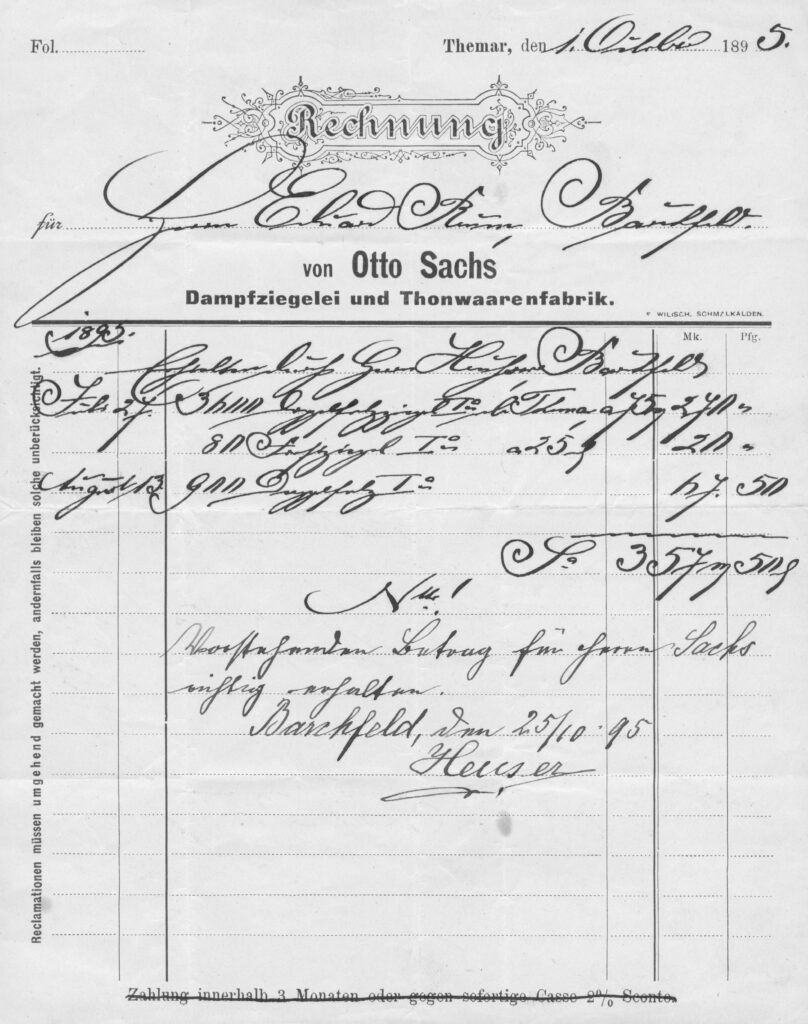 Fol.
Themar, den 1. October 1895.
Rechnung
für Herrn Eduard Barchfeld.
von Otto Sachs
Dampfziegelei und Thonwaarenfabrik.
WILISCH, SCHMALKALDEN.
1895.
Mk. Pfg.
Erhalten durch Herrn Barchfeld
Juli 27. 3600 Doppelfalzziegel Ia Themar a 75 M 270 "
80 Ia a 25 ₰ 20 "
August 13. 900 Doppelfalz Ia 67. 50
Sa 357 M 50 ₰
Vorstehenden Betrag für Herrn Sachs
richtig erhalten.
Barchfeld, den 25/10. 95
Heuser
Reclamationen müssen umgehend gemacht werden, andernfalls bleiben solche unberücksichtigt.
Zahlung innerhalb 3 Monaten oder gegen sofortige Casse 2% Sconto.